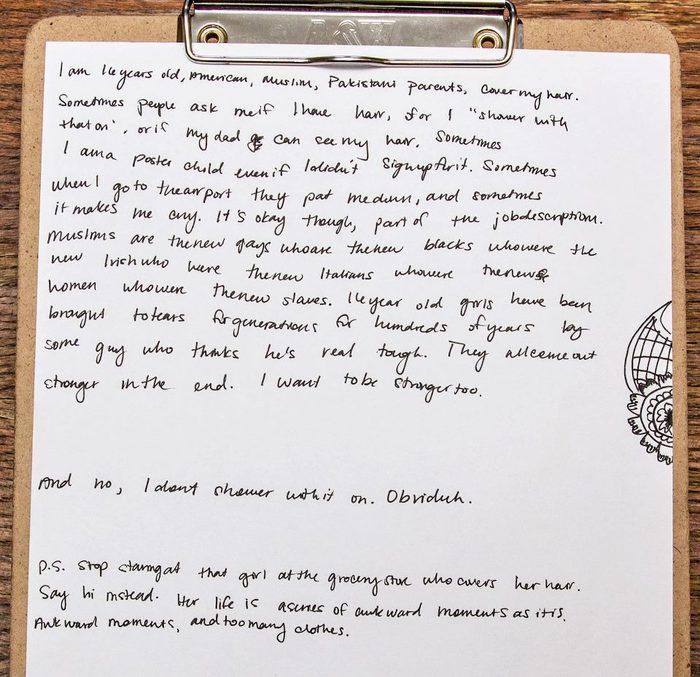 I am 16 years old, American, Muslim, Pakistani parents, cover my hair.
Sometimes people ask me if I have hair, if or I "shower with
that on", or if my dad can see my hair. Sometimes
I am a poster child even if I didn't sign up for it. Sometimes
when I go to the airport they pat me down, and sometimes
it makes me cry. It's okay though, part of the job description.
Muslims are the new gays who are the new blacks who were the
new Irish who were the new Italians who were the new
women who were the new slaves. 16 year old girls have been
brought to tears for generations for hundreds of years by
some guy who thinks he's real tough. They all come out
stronger in the end. I want to be stronger too.
And no, I don't shower with it on. Obviduh.
P.S. Stop staring at that girl at the grocery store who covers her hair.
Say hi instead. Her life is a series of awkward moments as it is.
Awkward moments, and too many clothes.